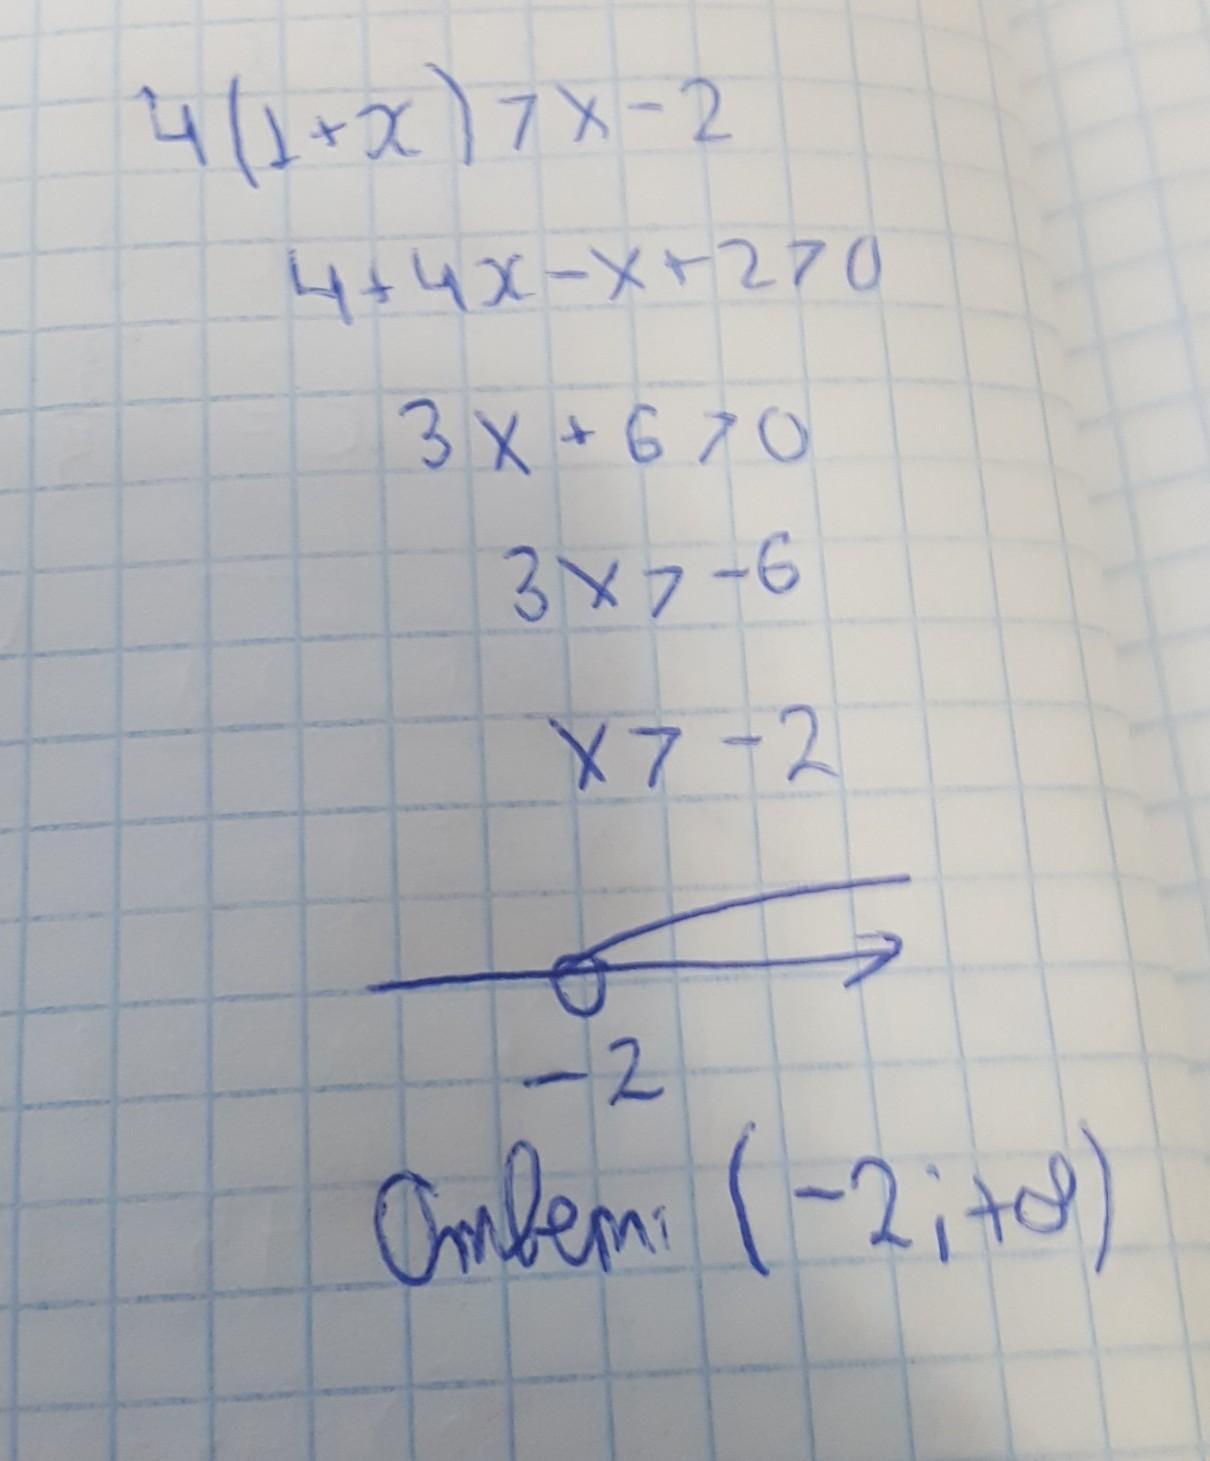 4(1+x)>x-2
4+4x-x+2>0
3x+6>0
3x>-6
x>-2
-2
Ответ: (-2;+∞)